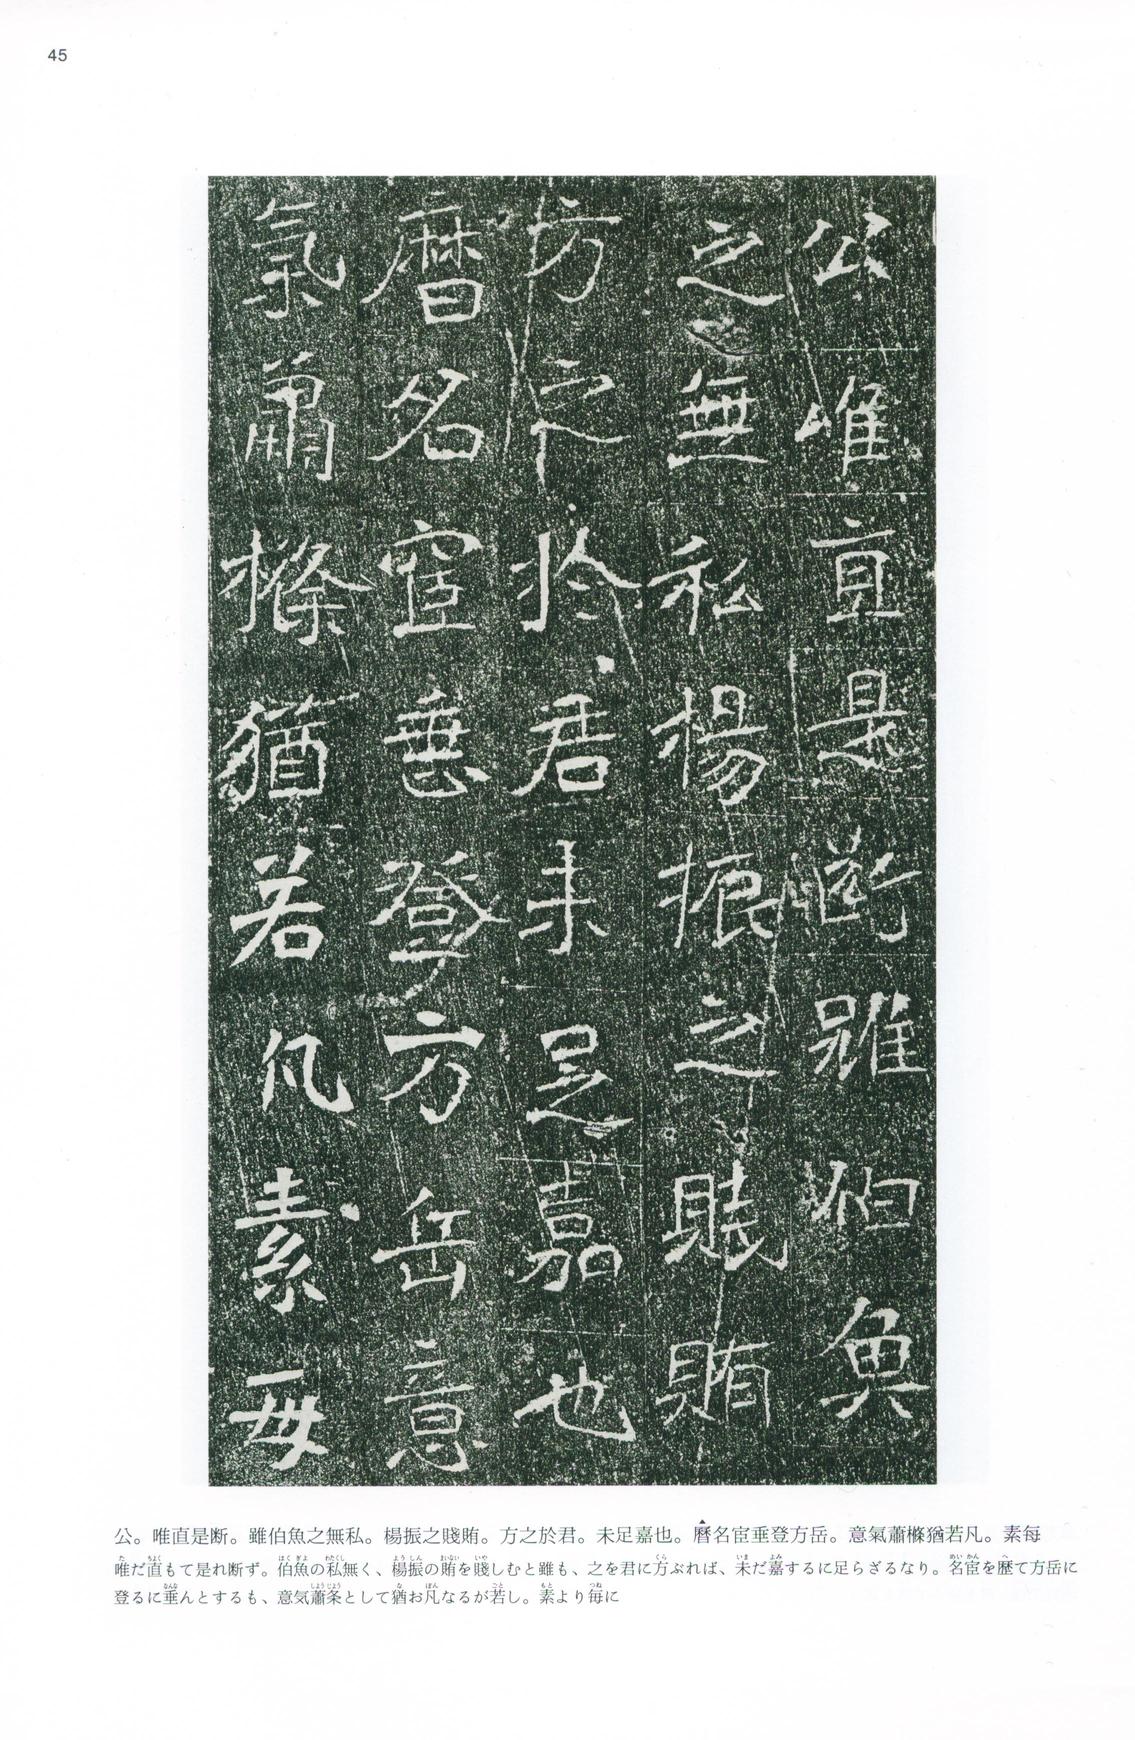 45
公唯直是断雖伯魚
之無私楊振之賤賄
方之於君未足嘉也
曆名宦垂登方岳意
氣蕭條猶若凡素每
公。唯直是断。雖伯魚之無私。楊振之賤賄。方之於君。未足嘉也。曆名宦垂登方岳。意氣蕭條猶若凡。素每
唯だ直もて是れ断ず。伯魚の私無く、楊振の賄を賤しむと雖も、之を君に方ぶれば、未だ嘉するに足らざるなり。名宦を歴て方岳に
登るに垂んとするも、意気蕭条として猶お凡なるが若し。素より毎に